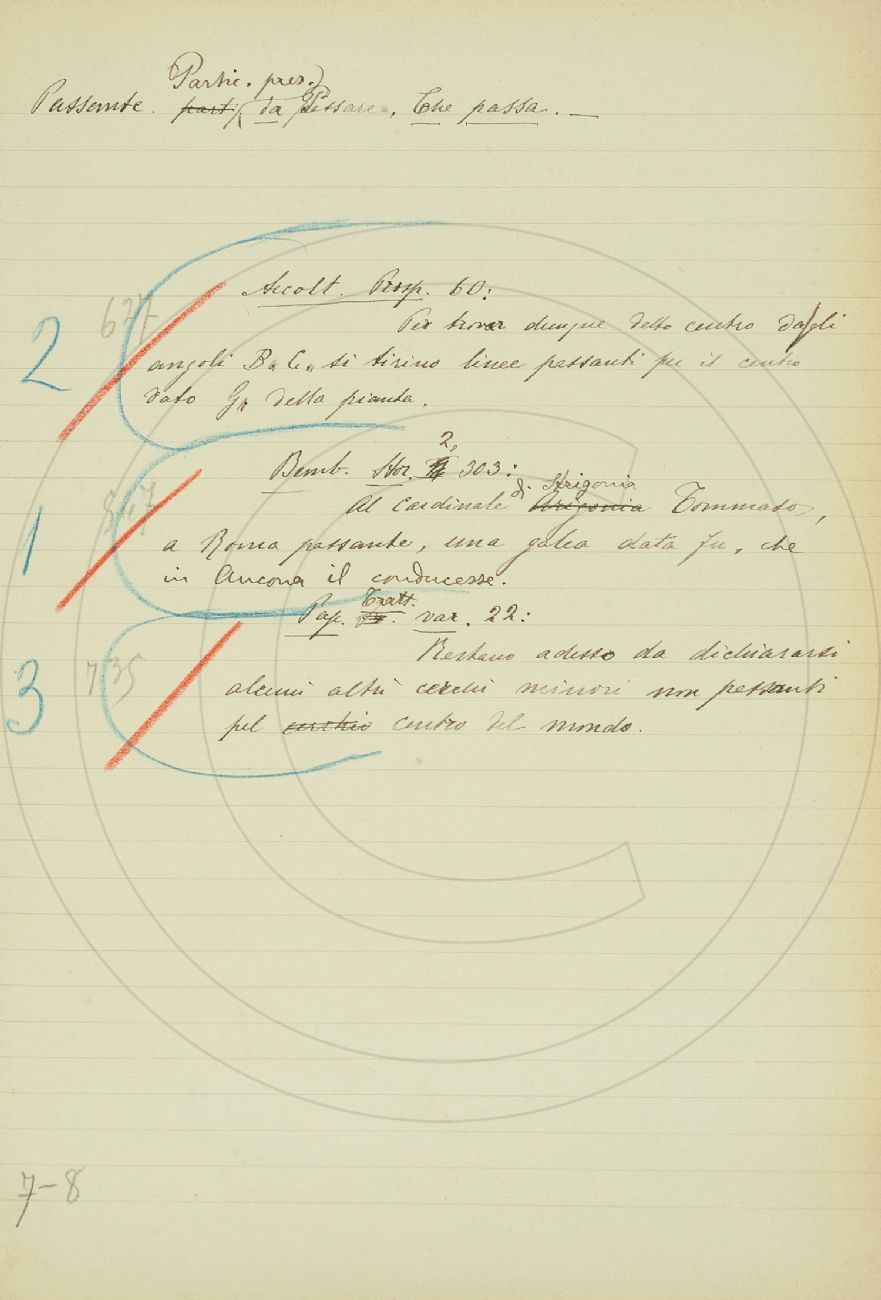 Partic. pres.
Passante. part. da Passare. Che passa. —
Accolt. Prosp. 60:
627
Per trovar dunque detto centro dagli
2
angoli B, C, si tirino linee passanti per il centro
dato G, della pianta.
2,
Bemb. Stor. 303:
di Strigonia
Al Cardinale Arigonia Tommaso,
547
1
a Roma passante, una galea data fu, che
in Ancona il conducesse.
Tratt.
Pap. var. 22:
Restano adesso da dichiararsi
3
735
alcuni altri cerchi minori non passanti
pel cerchio centro del mondo.
7-8